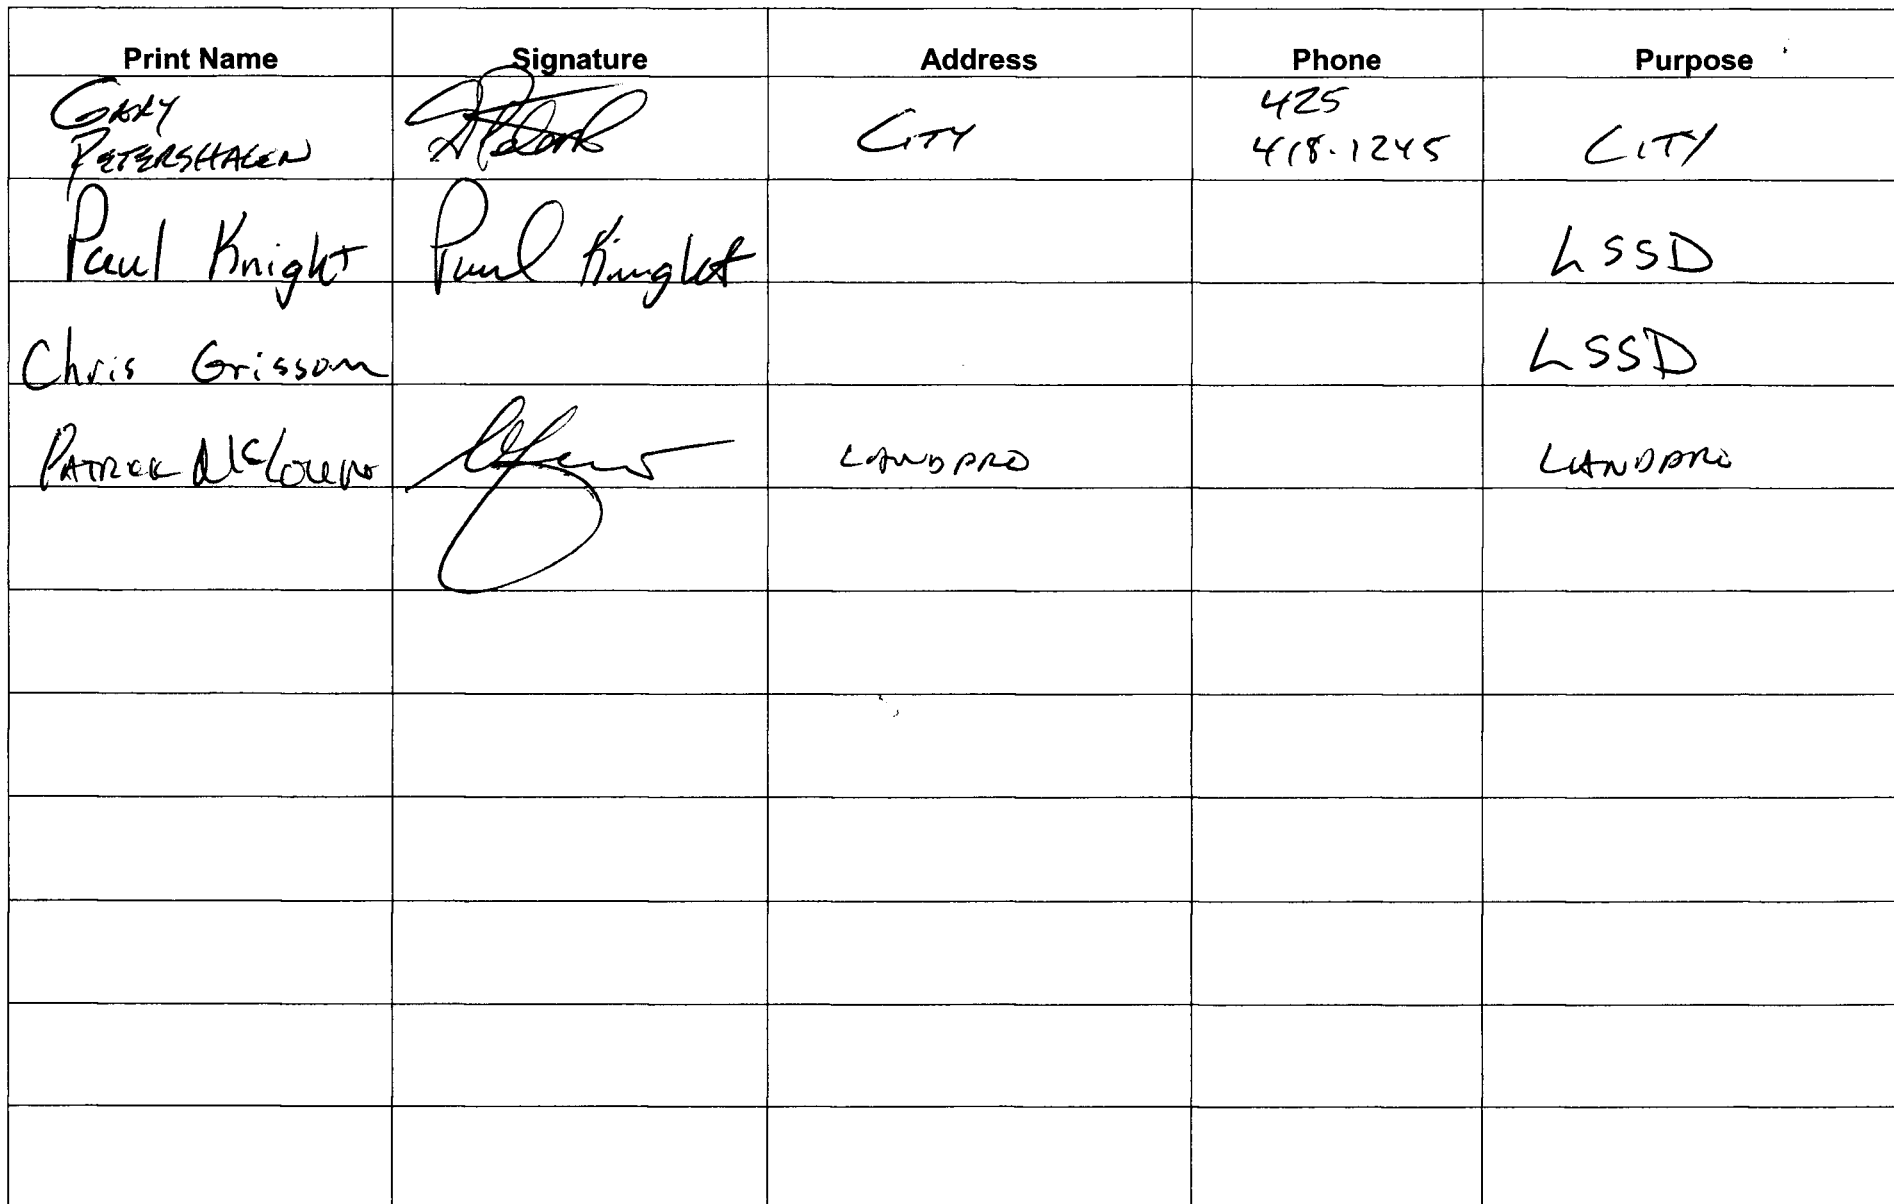 Print Name Signature Address Phone Purpose
GARY
PETERSHAGEN
CITY
425
418-1245
CITY
Paul Knight Paul Knight LSSD
Chris Grissom LSSD
PATRICK LANDPRO LANDPRO